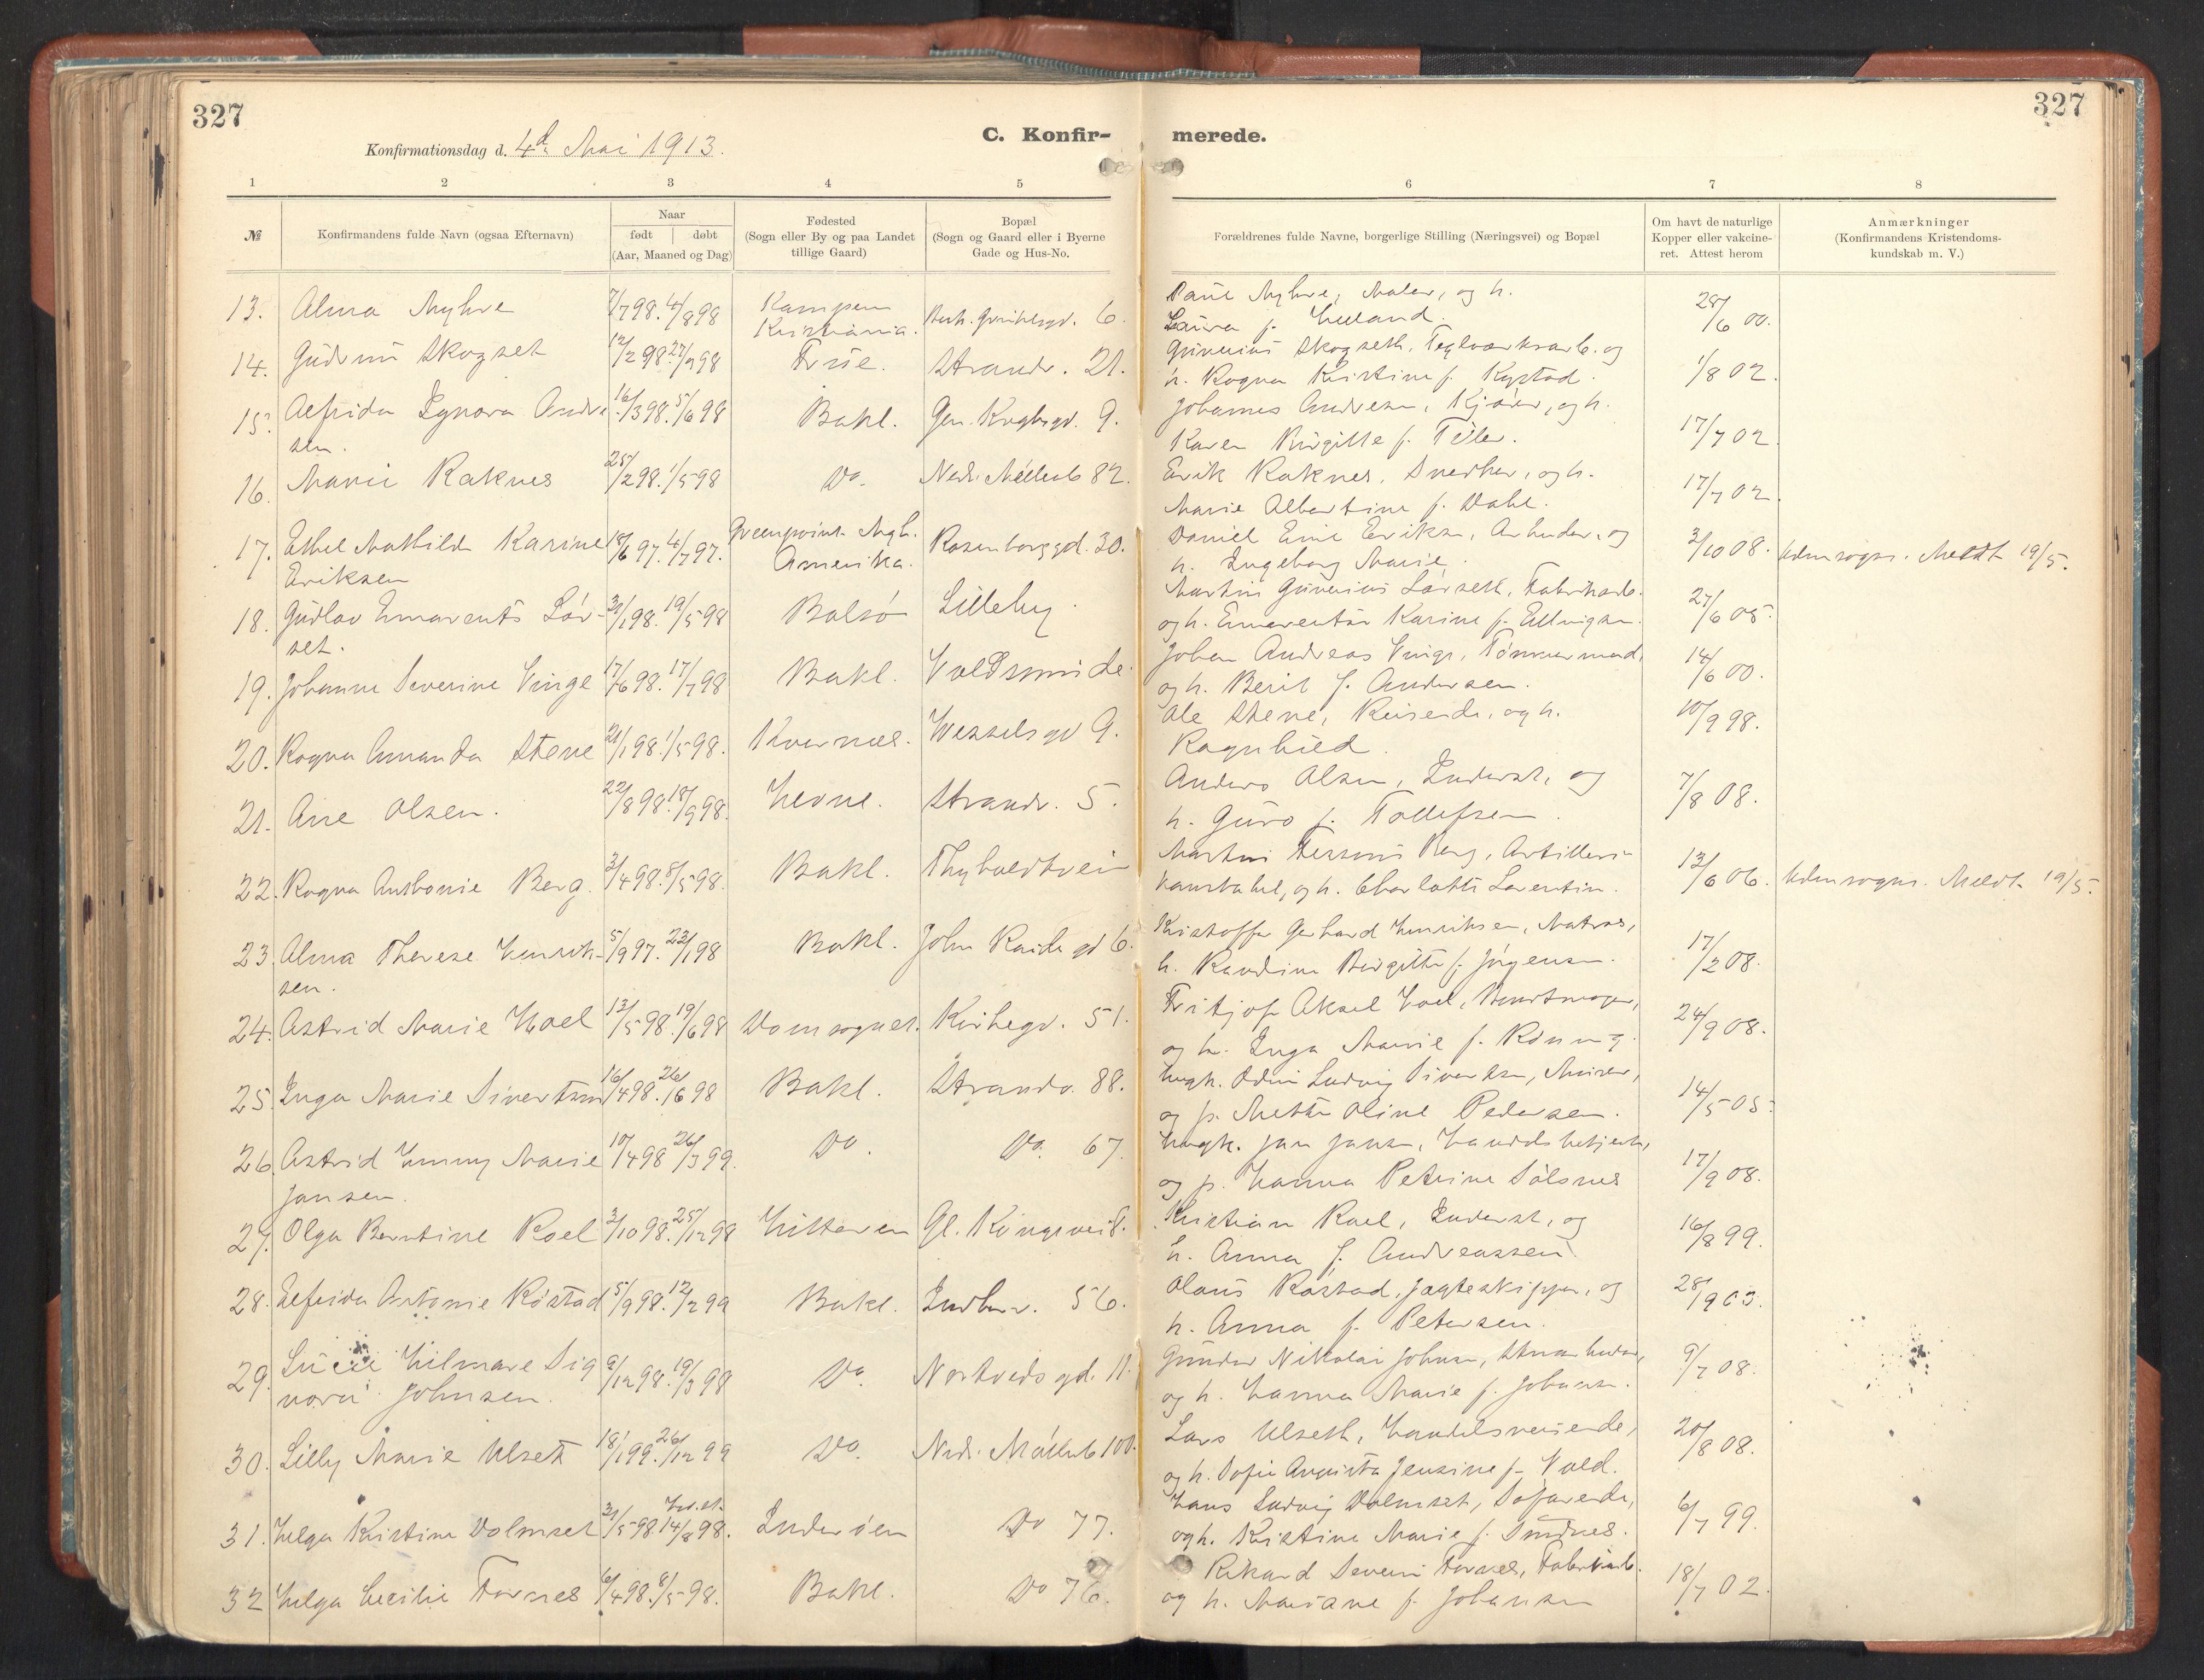 327
327
Konfirmationsdag d. 4de Mai 1913.
C. Konfir-
merede.
1 2 3 4 5 6 7 8
№
Konfirmandens fulde Navn (ogsaa Efternavn)
Naar
født døbt
(Aar, Maaned og Dag)
Fødested
(Sogn eller By og paa Landet
tillige Gaard)
Bopæl
(Sogn og Gaard eller i Byerne
Gade og Hus-No.
Forældrenes fulde Navne, borgerlige Stilling (Næringsvei) og Bopæl
Om havt de naturlige
Kopper eller vakcine-
ret. Attest herom
Anmærkninger
(Konfirmandens Kristendoms-
kundskab m. V.)
13. Alma Myhre 7/7 98. 4/8 98 Kampen Kristiania. 6. Paul Myhre, Maler, og h.
Laura f. 28/6 00.
14. Gudrun Skogset 12/2 98. 27/2 98 Strandv. 21. Gunerius Skogseth, Teglværksarb. og
h. Ragna Kristine f. Kystad. 1/8 02.
15. Alfrida Signora Andre- 16/3 98. 5/6 98 Bakl. 9. Johannes Andresen, Kjører, og h.
sen. Karen Birgitte f. Tiller. 17/7 02.
16. Marie Raknes 25/2 98. 1/5 98 Do. Nedr. Møllenb 82. Erik Raknes, Snedker, og h.
Marie Albertine f. Dahl. 17/7 02.
17. Ethel Mathilde Karine 18/6 97. 4/7 97. Greenpoint Amerika. Rosenborggd. 30. Daniel Emil Eriksen, Arbeider, og
Eriksen h. Ingeborg Marie. 3/10 08. Udensogns. Meldt 19/5.
18. Gudlav Emarents Lør- 31/1 98. 19/5 98 Bolsø Lilleby. Martin Gunerius Lørseth, Fabrikarb.
set. og h. Emerentse Karine f. Ellingsen. 27/6 05.
19. Johanne Severine Vinge 17/6 98. 17/7 98 Bakl. Voldsminde. Johan Andreas Vinge, Tømmermand,
og h. Berit f. Andersen. 14/6 00.
20. Ragna Amanda Stene 21/1 98. 1/5 98. Kvernes. Wesselsgd 9. Ole Stene, Reisende, og h.
Ragnhild. 10/9 98.
21. Ane Olsen. 22/8 98. 18/9 98. Hevne. Strandv. 5. Anders Olsen, Inderst, og
h. Guro f. Tollefsen. 7/8 08.
22. Ragna Antonie Berg. 3/4 98. 8/5 98. Bakl. Thyholdtvei Martin Berg, Artilleri-
og h. Charlotte Laventin. 13/6 06. Udensogns. Meldt 19/5.
23. Alma Therese Henrik- 5/9 97. 23/1 98 Bakl. 6. Kristoffer Gerhard Henriksen, Matros,
sen. h. Randine Birgitte f. Jørgensen. 17/2 08.
24. Astrid Marie Hoel 13/5 98. 19/6 98 Domsognet. Kirkegd. 51. Fritjof Aksel Hoel,
og h. Inga Marie f. Rønning. 24/9 08.
25. Inga Marie Sivertsen 16/4 98. 26/6 98 Bakl. Strandv. 88. Ungk. Odin Ludvig Sivertsen, Murer,
og p. Mette Oline Pedersen. 14/5 05.
26. Astrid Emmy Marie 10/4 98 26/3 99. Do. Do. 67. Ungk. Jan Jansen,
Jansen. og p. Hanna Petrine Sølsnes 17/9 08.
27. Olga Berntine Roel 3/10 98. 25/12 98 Hitteren Gl. Kongevei 8. Kristian Roel, Inderst, og
h. Anna f. Andreassen. 16/8 99.
28. Elfrida Antonie Røstad 5/9 98. 12/2 99 Bakl. Indherv. 56. Olaus Røstad, Jagteskipper, og
h. Anna f. Petersen. 28/9 03.
29. Lucie Hilmare Sig 9/1 98. 19/3 98 Do. Nortvedsgd. 11. Gunder Nikolai Johnsen, og
nora Johnsen. og h. Hanna Marie f. Johansen. 9/7 08.
30. Lilly Marie Ulset 18/1 99. 26/12 99 Do. Nedr. Møllenb 100. Lars Ulseth, Handelsreisende,
og h. Sofie Augusta Jensine f. Vold. 20/8 08.
31. Helga Kristine Volmset 31/5 98. 14/8 98. Inderøen Do 77. Hans Ludvig Volmset, Søfarende,
og h. Kristine Marie f. Sundnes. 6/7 99.
32 Helga Cecilie Fornes 6/4 98. 8/5 98. Bakl. Do 76. Rikard Severin Fornes, Fabrikarb.
og h. Mariane f. Johansen 18/7 02.